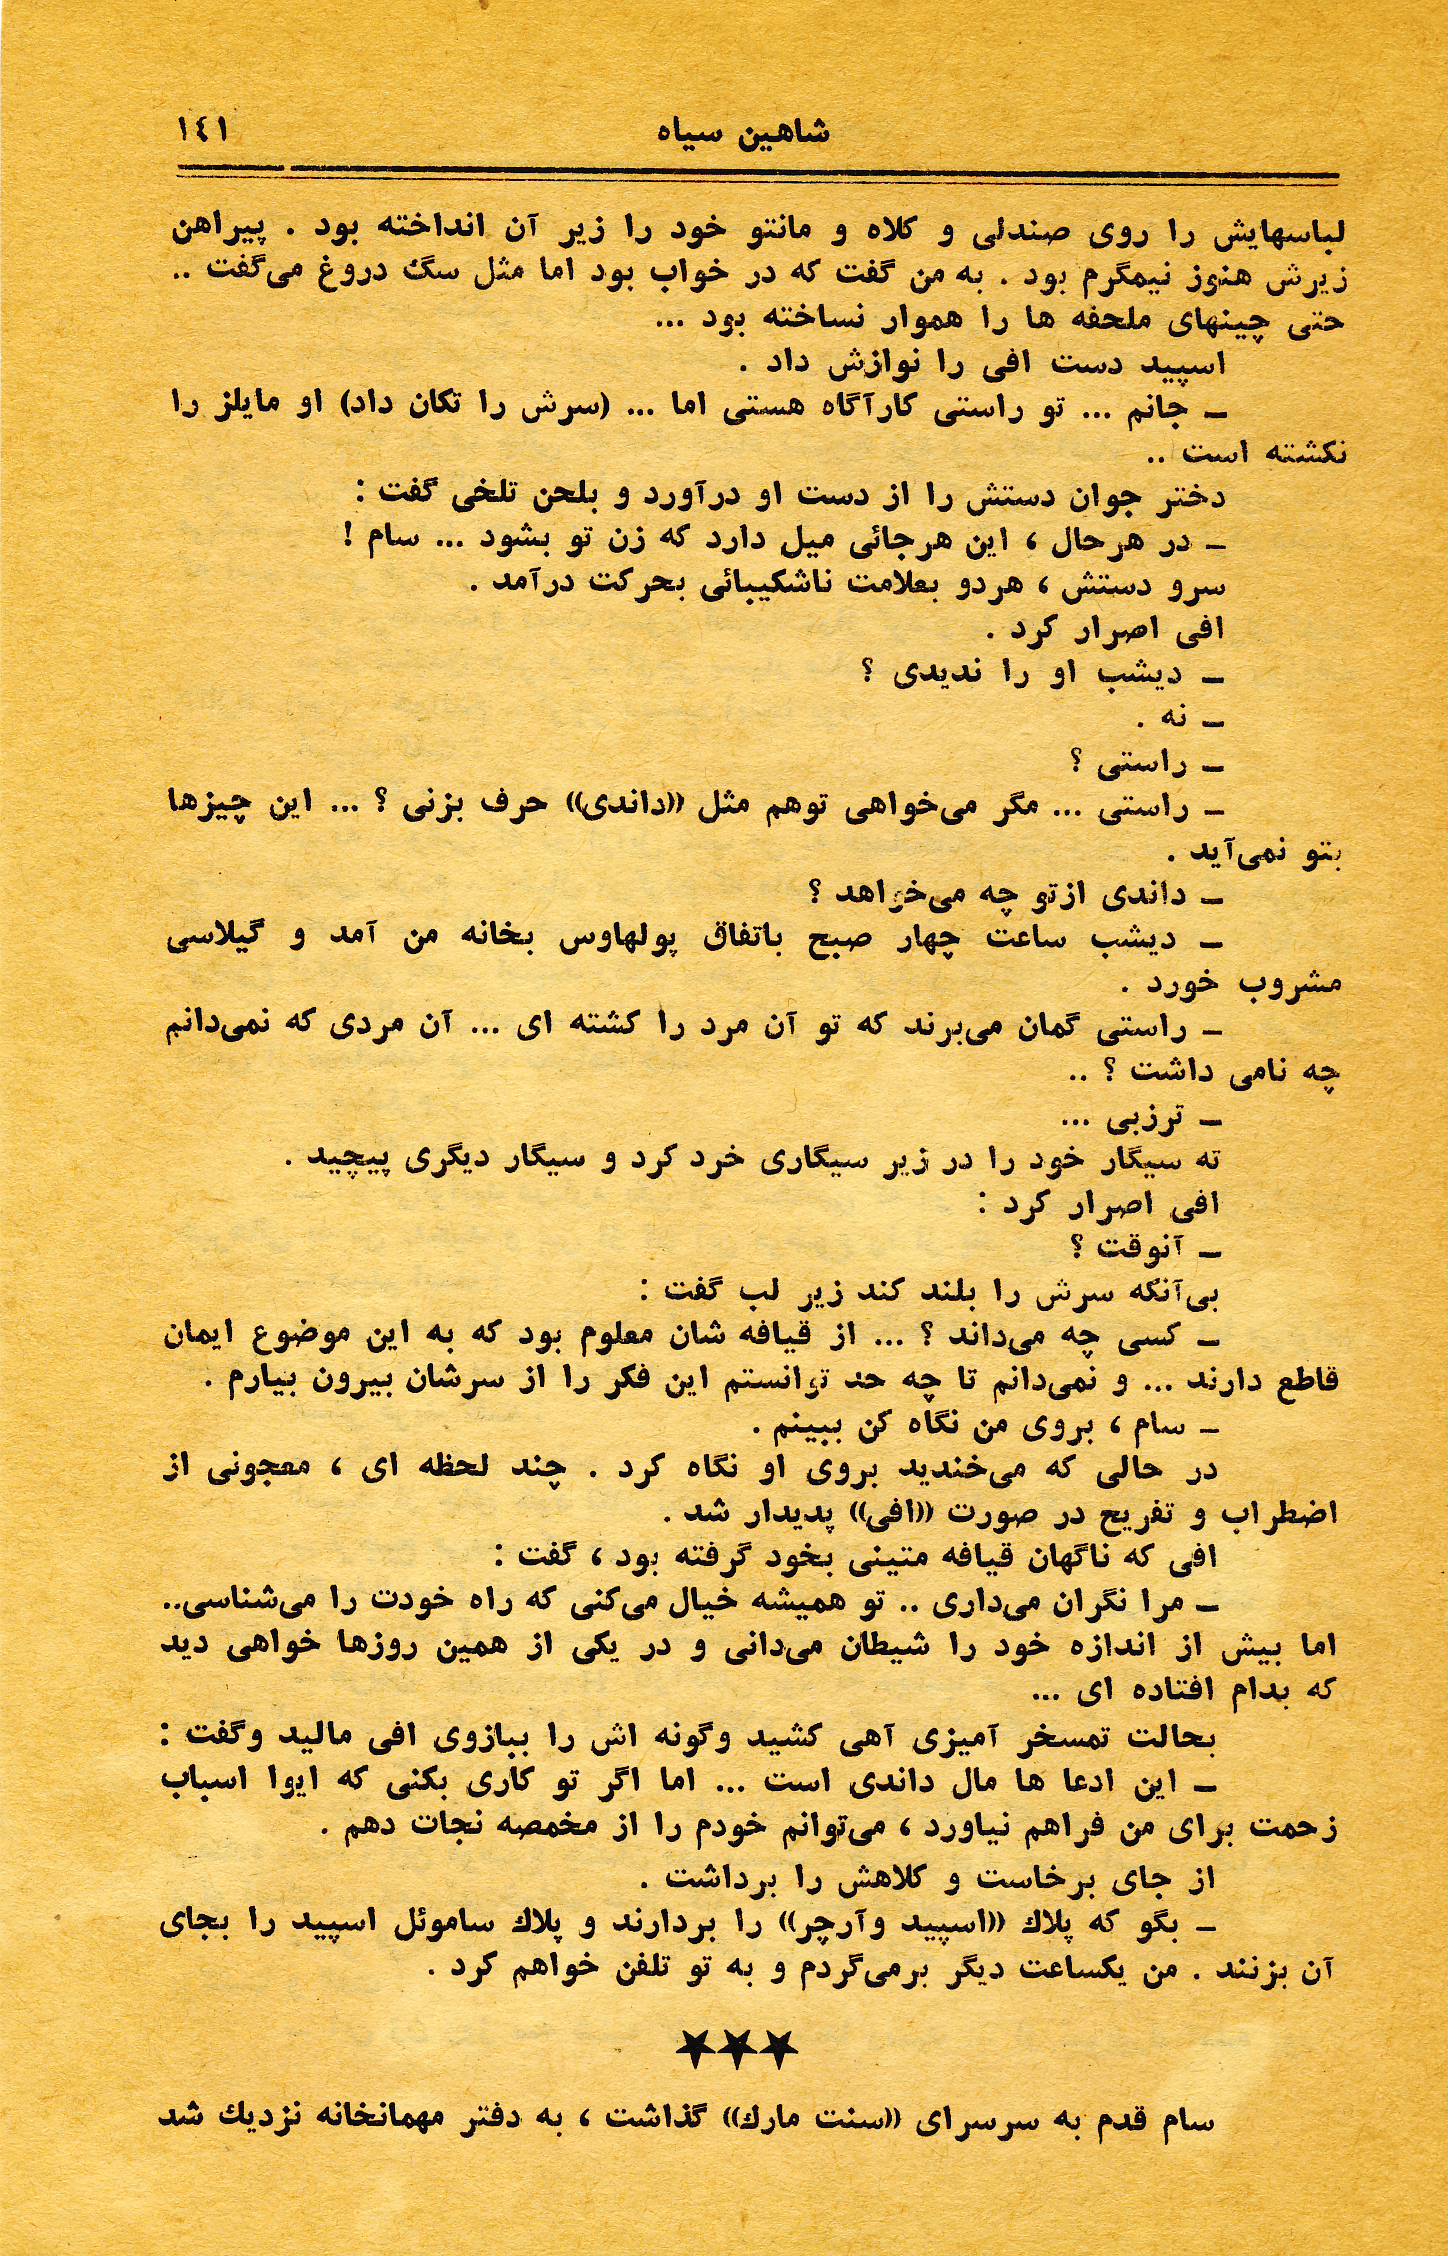 شاهین سیاه ۱٤۱
لباسهایش را روی صندلی و کلاه و مانتو خود را زیر آن انداخته بود . پیراهن
زیرش هنوز نیمگرم بود . به من گفت که در خواب بود اما مثل سگ دروغ می‌گفت ..
حتی چینهای ملحفه ها را هموار نساخته بود ...
اسپید دست افی را نوازش داد .
ـ جانم ... تو راستی کارآگاه هستی اما ... (سرش را تکان داد) او مایلز را
نکشته است ..
دختر جوان دستش را از دست او درآورد و بلحن تلخی گفت :
ـ در هرحال ، این هرجائی میل دارد که زن تو بشود ... سام !
سرو دستش ، هردو بعلامت ناشکیبائی بحرکت درآمد .
افی اصرار کرد .
ـ دیشب او را ندیدی ؟
ـ نه .
ـ راستی ؟
ـ راستی ... مگر می‌خواهی توهم مثل ((داندی)) حرف بزنی ؟ ... این چیزها
بتو نمی‌آید .
ـ داندی ازتو چه می‌خواهد ؟
ـ دیشب ساعت چهار صبح باتفاق پولهاوس بخانه من آمد و گیلاسی
مشروب خورد .
ـ راستی گمان می‌برند که تو آن مرد را کشته ای ... آن مردی که نمی‌دانم
چه نامی داشت ؟ ..
ـ ترزبی ...
ته سیگار خود را در زیر سیگاری خرد کرد و سیگار دیگری پیچید .
افی اصرار کرد :
ـ آنوقت ؟
بی‌آنکه سرش را بلند کند زیر لب گفت :
ـ کسی چه می‌داند ؟ ... از قیافه شان معلوم بود که به این موضوع ایمان
قاطع دارند ... و نمی‌دانم تا چه حد توانستم این فکر را از سرشان بیرون بیارم .
ـ سام ، بروی من نگاه کن ببینم .
در حالی که می‌خندید بروی او نگاه کرد . چند لحظه ای ، معجونی از
اضطراب و تفریح در صورت ((افی)) پدیدار شد .
افی که ناگهان قیافه متینی بخود گرفته بود ، گفت :
ـ مرا نگران می‌داری .. تو همیشه خیال می‌کنی که راه خودت را می‌شناسی..
اما بیش از اندازه خود را شیطان می‌دانی و در یکی از همین روزها خواهی دید
که بدام افتاده ای ...
بحالت تمسخر آمیزی آهی کشید وگونه اش را ببازوی افی مالید وگفت :
ـ این ادعا ها مال داندی است ... اما اگر تو کاری بکنی که ایوا اسباب
زحمت برای من فراهم نیاورد ، می‌توانم خودم را از مخمصه نجات دهم .
از جای برخاست و کلاهش را برداشت .
ـ بگو که پلاك ((اسپید وآرچر)) را بردارند و پلاك ساموئل اسپید را بجای
آن بزنند . من یکساعت دیگر برمی‌گردم و به تو تلفن خواهم کرد .
★★★
سام قدم به سرسرای ((سنت مارك)) گذاشت ، به دفتر مهمانخانه نزدیك شد